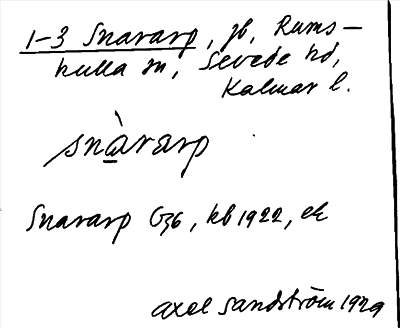 1-3 Snararp, jb, Rums-
kulla sn, Sevede hd,
Kalmar l.
snàrarp
Snararp G36, kb 1922, ek
Axel Sandström 1929